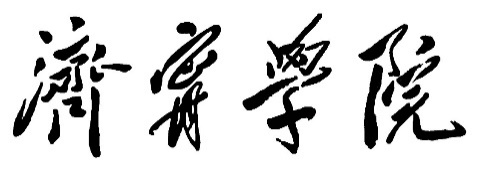 濟寧學院